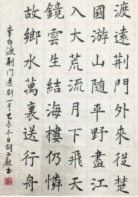 渡遠荊門外來從楚
國游山隨平野盡江
入大荒流月下飛天
鏡雲生結海樓仍憐
故鄉水萬裏送行舟
李白渡荊門送別一首冬日書